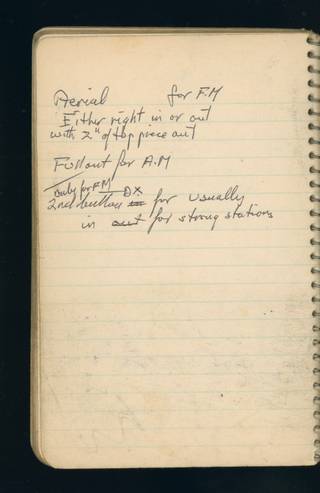 Aerial for F.M
Either right in or out
with 2" of top piece out
Full out for A.M
only for FM
2nd button DX for usually
in out for strong stations